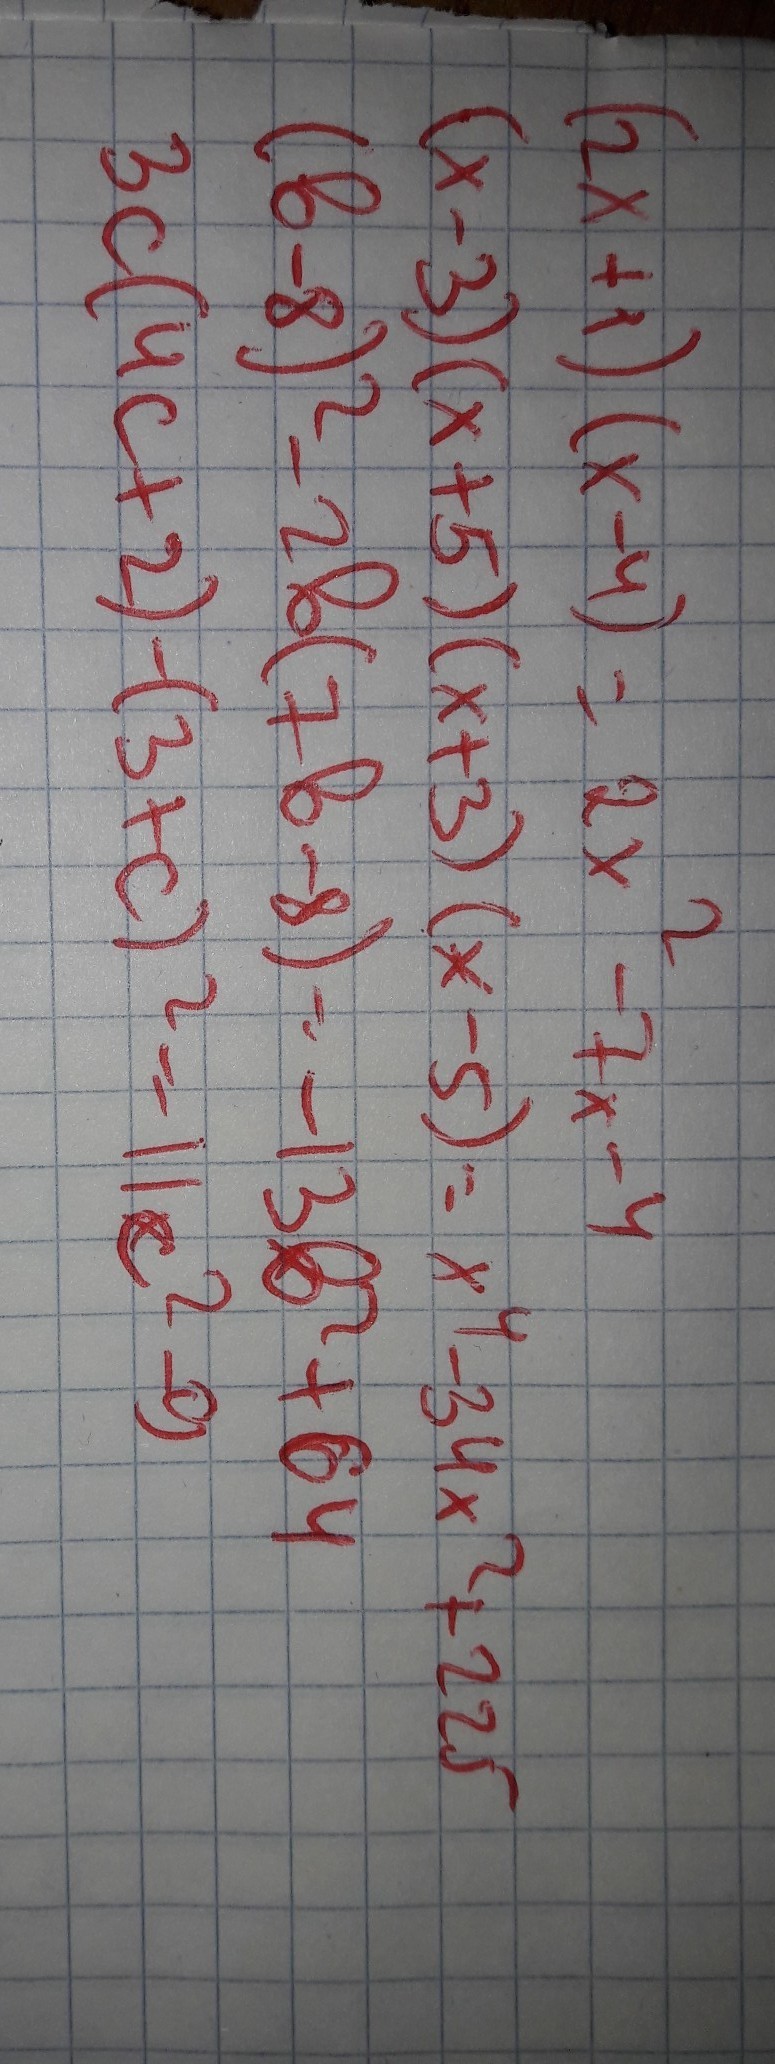 (2x+1)(x-4) = 2x² -7x-4
(x-3)(x+5)(x+3)(x-5) = x⁴-34x²+225
(b-8)²-2b(7b-8) = -13b²+64
3c(4c+2)-(3+c)² = 11c²-9